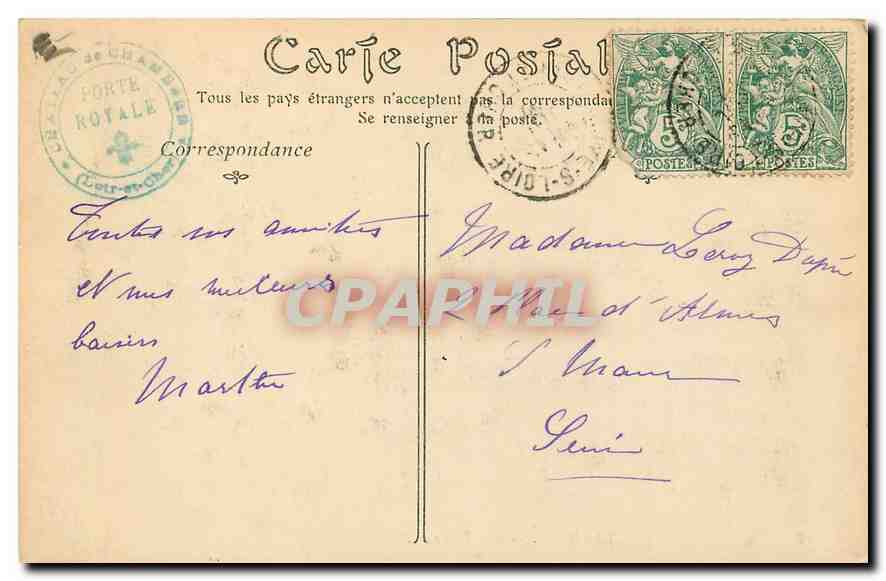 Carte Postale
Tous les pays étrangers n'acceptent pas la correspondan
Se renseigner à la poste.
CHATEAU de CHAMBORD
PORTE
ROYALE
(Loir-et-Cher)
Correspondance
Toutes nos amitiés
et nos meilleurs
baisers
Marthe
Madame Leroy Dupré
2 Place d'Armes
St Maur
Seine
5 POSTES
5 POSTES
S-LOIRE
CHER
CPAPHIL